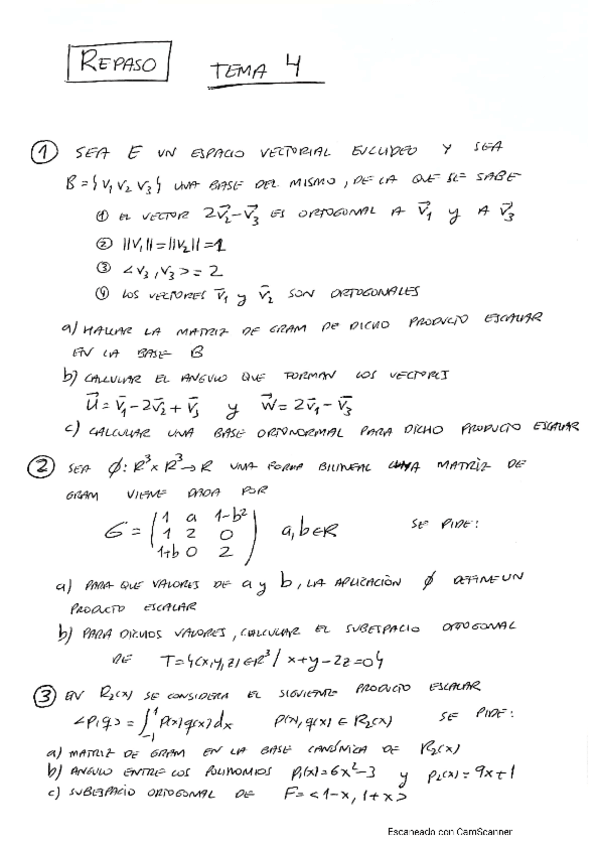 REPASO TEMA 4
① SEA E UN ESPACIO VECTORIAL EUCLIDEO Y SEA
B={v₁ v₂ v₃} UNA BASE DEL MISMO, DE LA QUE SE SABE
① EL VECTOR 2v⃗₂-v⃗₃ ES ORTOGONAL A v⃗₁ y A v⃗₃
② ||v₁||=||v₂||=1
③ <v₃,v₃>=2
④ LOS VECTORES v̄₁ y v̄₂ SON ORTOGONALES
a) HALLAR LA MATRIZ DE GRAM DE DICHO PRODUCTO ESCALAR
EN LA BASE B
b) CALCULAR EL ANGULO QUE FORMAN LOS VECTORES
u⃗=v̄₁-2v̄₂+v̄₃ y w⃗=2v̄₁-v̄₃
c) CALCULAR UNA BASE ORTONORMAL PARA DICHO PRODUCTO ESCALAR
② SEA ϕ:R³×R³→R UNA FORMA BILINEAL CUYA MATRÌZ DE
GRAM VIENE DADA POR
G = ( 1 a 1-b²
1 2 0
1+b 0 2 ) a,b∈R SE PIDE:
a) PARA QUE VALORES DE a y b, LA APLICACIÓN ϕ DEFINE UN
PRODUCTO ESCALAR
b) PARA DICHOS VALORES, CALCULAR EL SUBESPACIO ORTOGONAL
DE T={(x,y,z)∈R³/ x+y-2z=0}
③ EN R₂(x) SE CONSIDERA EL SIGUIENTE PRODUCTO ESCALAR
<p,q>=∫₋₁¹p(x)q(x)dx p(x),q(x)∈R₂(x) SE PIDE:
a) MATRIZ DE GRAM EN LA BASE CANÓNICA DE R₂(x)
b) ANGULO ENTRE LOS POLINOMIOS p₁(x)=6x²-3 y p₂(x)=9x+1
c) SUBESPACIO ORTOGONAL DE F=<1-x, 1+x>
Escaneado con CamScanner